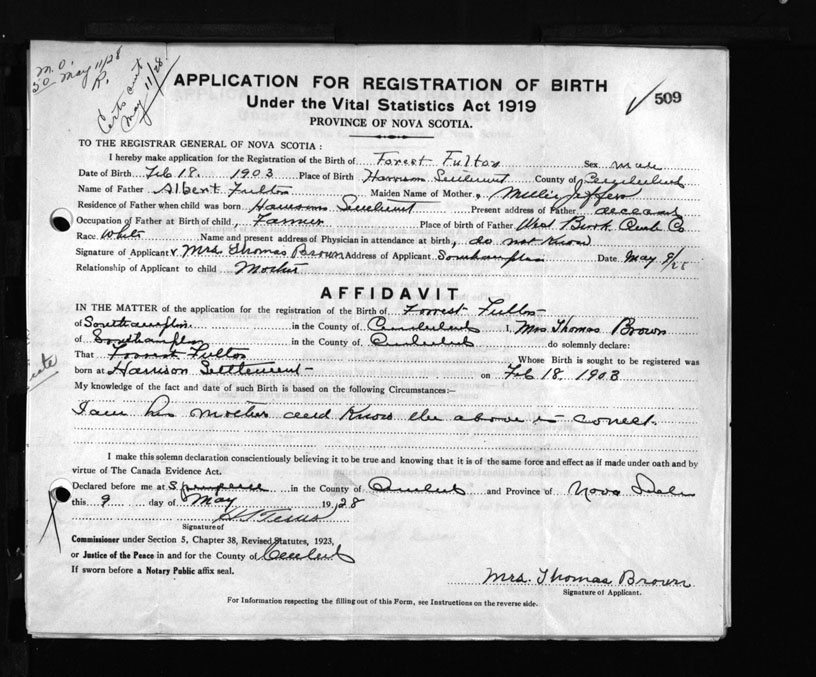 M.O.
30 May 11/28
R.
Certs out
May 11/28.
APPLICATION FOR REGISTRATION OF BIRTH
Under the Vital Statistics Act 1919
PROVINCE OF NOVA SCOTIA.
509
TO THE REGISTRAR GENERAL OF NOVA SCOTIA:
I hereby make application for the Registration of the Birth of Forest Fulton Sex Male
Date of Birth Feb 18. 1903 Place of Birth Harrison Settlement County of Cumberland
Name of Father Albert Fulton Maiden Name of Mother, Millie
Residence of Father when child was born Harrison Settlement Present address of Father, deceased
Occupation of Father at Birth of child, Farmer Place of birth of Father West Brook Cumb Co
Race White Name and present address of Physician in attendance at birth, do not know
Signature of Applicant Mrs Thomas Brown Address of Applicant Southampton Date May 9/28
Relationship of Applicant to child Mother
AFFIDAVIT
IN THE MATTER of the application for the registration of the Birth of Forrest Fulton
of Southampton in the County of Cumberland I, Mrs Thomas Brown
of Southampton in the County of Cumberland do solemnly declare:
That Forrest Fulton Whose Birth is sought to be registered was
born at Harrison Settlement on Feb 18. 1903
My knowledge of the fact and date of such Birth is based on the following Circumstances:—
I am his mother and know the above is correct.
I make this solemn declaration conscientiously believing it to be true and knowing that it is of the same force and effect as if made under oath and by
virtue of The Canada Evidence Act.
Declared before me at in the County of Cumberland and Province of Nova Scotia
this 9 day of May 1928
Signature of
Commissioner under Section 5, Chapter 38, Revised Statutes, 1923,
or Justice of the Peace in and for the County of Cumberland
If sworn before a Notary Public affix seal.
Mrs. Thomas Brown
Signature of Applicant.
For Information respecting the filling out of this Form, see Instructions on the reverse side.